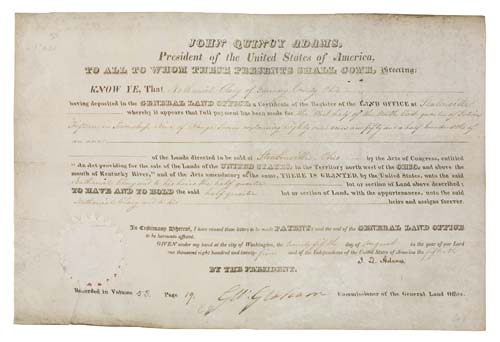 JOHN QUINCY ADAMS,
President of the United States of America,
TO ALL TO WHOM THESE PRESENTS SHALL COME, Greeting:
KNOW YE, That Nathaniel of County Ohio
having deposited in the GENERAL LAND OFFICE, a Certificate of the Register of the LAND OFFICE at Steubenville
whereby it appears that full payment has been made for the West half of the North East quarter of Section
in Township of Range containing Eighty acres and fifty and a half hundredths of
an acre
of the Lands directed to be sold at Steubenville Ohio by the Acts of Congress, entitled
"An Act providing for the sale of the Lands of the UNITED STATES, in the Territory north west of the OHIO, and above the
mouth of Kentucky River," and of the Acts amendatory of the same, THERE IS GRANTED, by the United States, unto the said
Nathaniel and to his heirs the half quarter lot or section of Land above described;
TO HAVE AND TO HOLD the said half quarter lot or section of Land, with the appurtenances, unto the said
Nathaniel and to his heirs and assigns forever.
In Testimony Whereof, I have caused these letters to be made PATENT, and the seal of the GENERAL LAND OFFICE
to be hereunto affixed.
GIVEN under my hand at the city of Washington, the day of August in the year of our Lord
one thousand eight hundred and twenty five and of the Independence of the United States of America the fiftieth
BY THE PRESIDENT, J. Q. Adams
Geo. Graham Commissioner of the General Land Office.
Recorded in Volume 53 Page 19